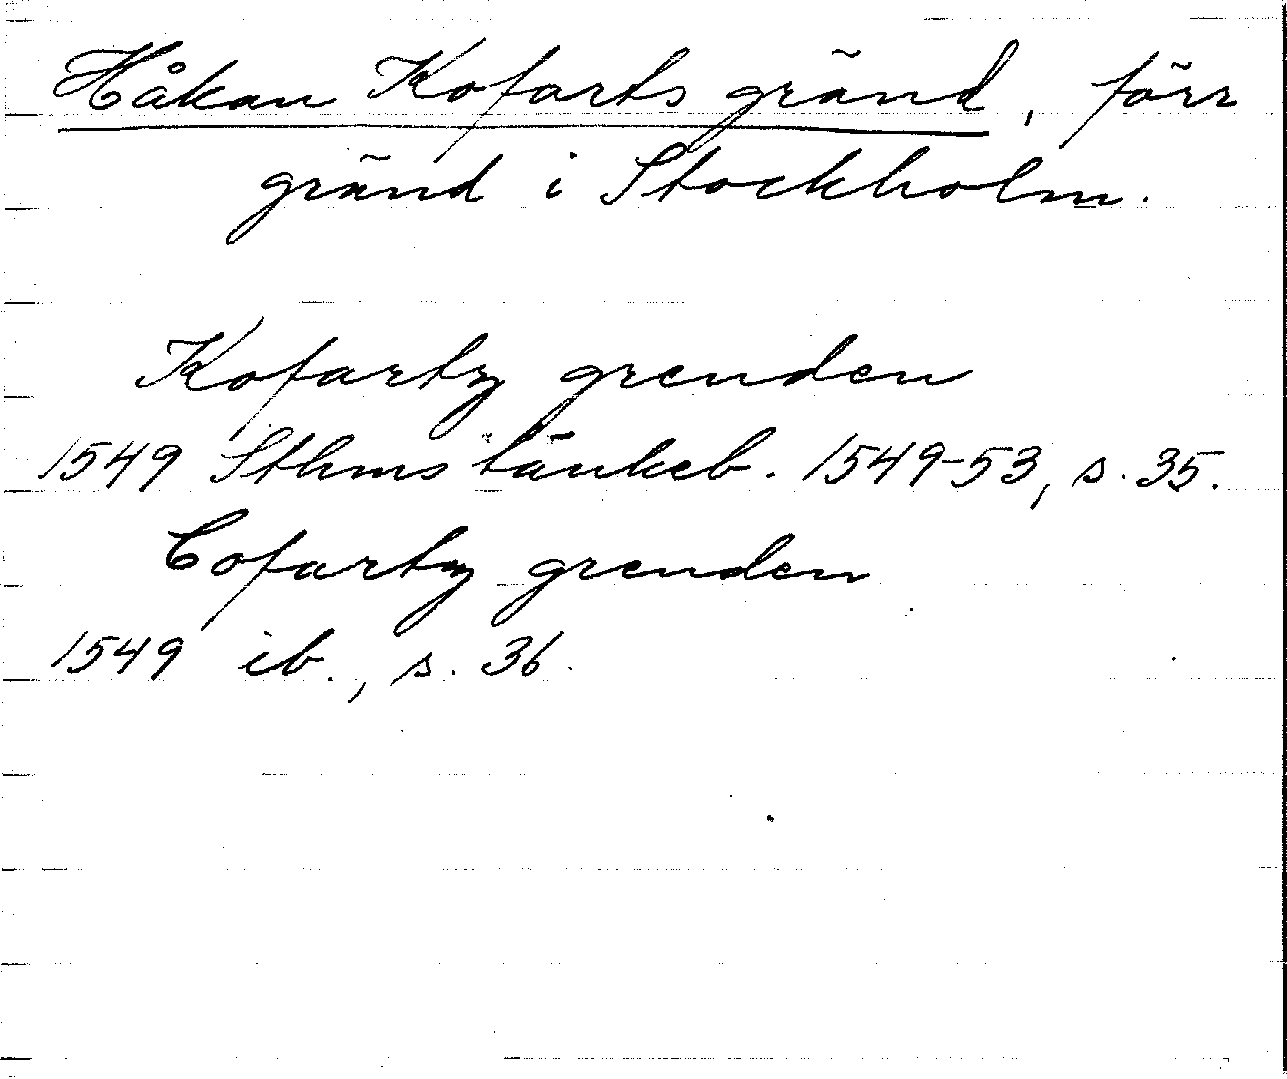 Håkan Kofarts gränd, förr
gränd i Stockholm.
Kofartz grenden
1549 Sthms tänkeb. 1549-53, s. 35.
Cofartz grenden
1549 ib., s. 36.